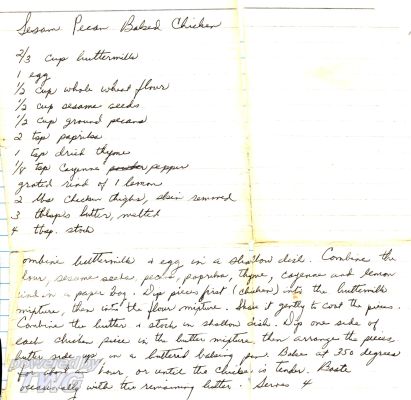 Sesam Pecan Baked Chicken
2/3 cup buttermilk
1 egg
1/2 cup whole wheat flour
1/2 cup sesame seeds
1/2 cup ground pecans
2 tsp paprika
1 tsp dried thyme
1/8 tsp cayenne pepper
grated rind of 1 lemon
2 lbs chicken thighs, skin removed
3 tblsps butter, melted
4 tbsp. stock
ombine buttermilk & egg in a shallow dish. Combine the
lour, sesame seeds, pecans, paprika, thyme, cayenne and lemon
rind in a paper bag. Dip pieces first (chicken) into the buttermilk
mixture, then into the flour mixture. Shake it gently to coat the pieces.
Combine the butter & stock in shallow dish. Dip one side of
each chicken piece in the butter mixture, then arrange the pieces
butter side up in a buttered baking pan. Bake at 350 degrees
for about 1 hour or until the chicken is tender. Baste
occasionally with the remaining butter. Serves 4
powered by